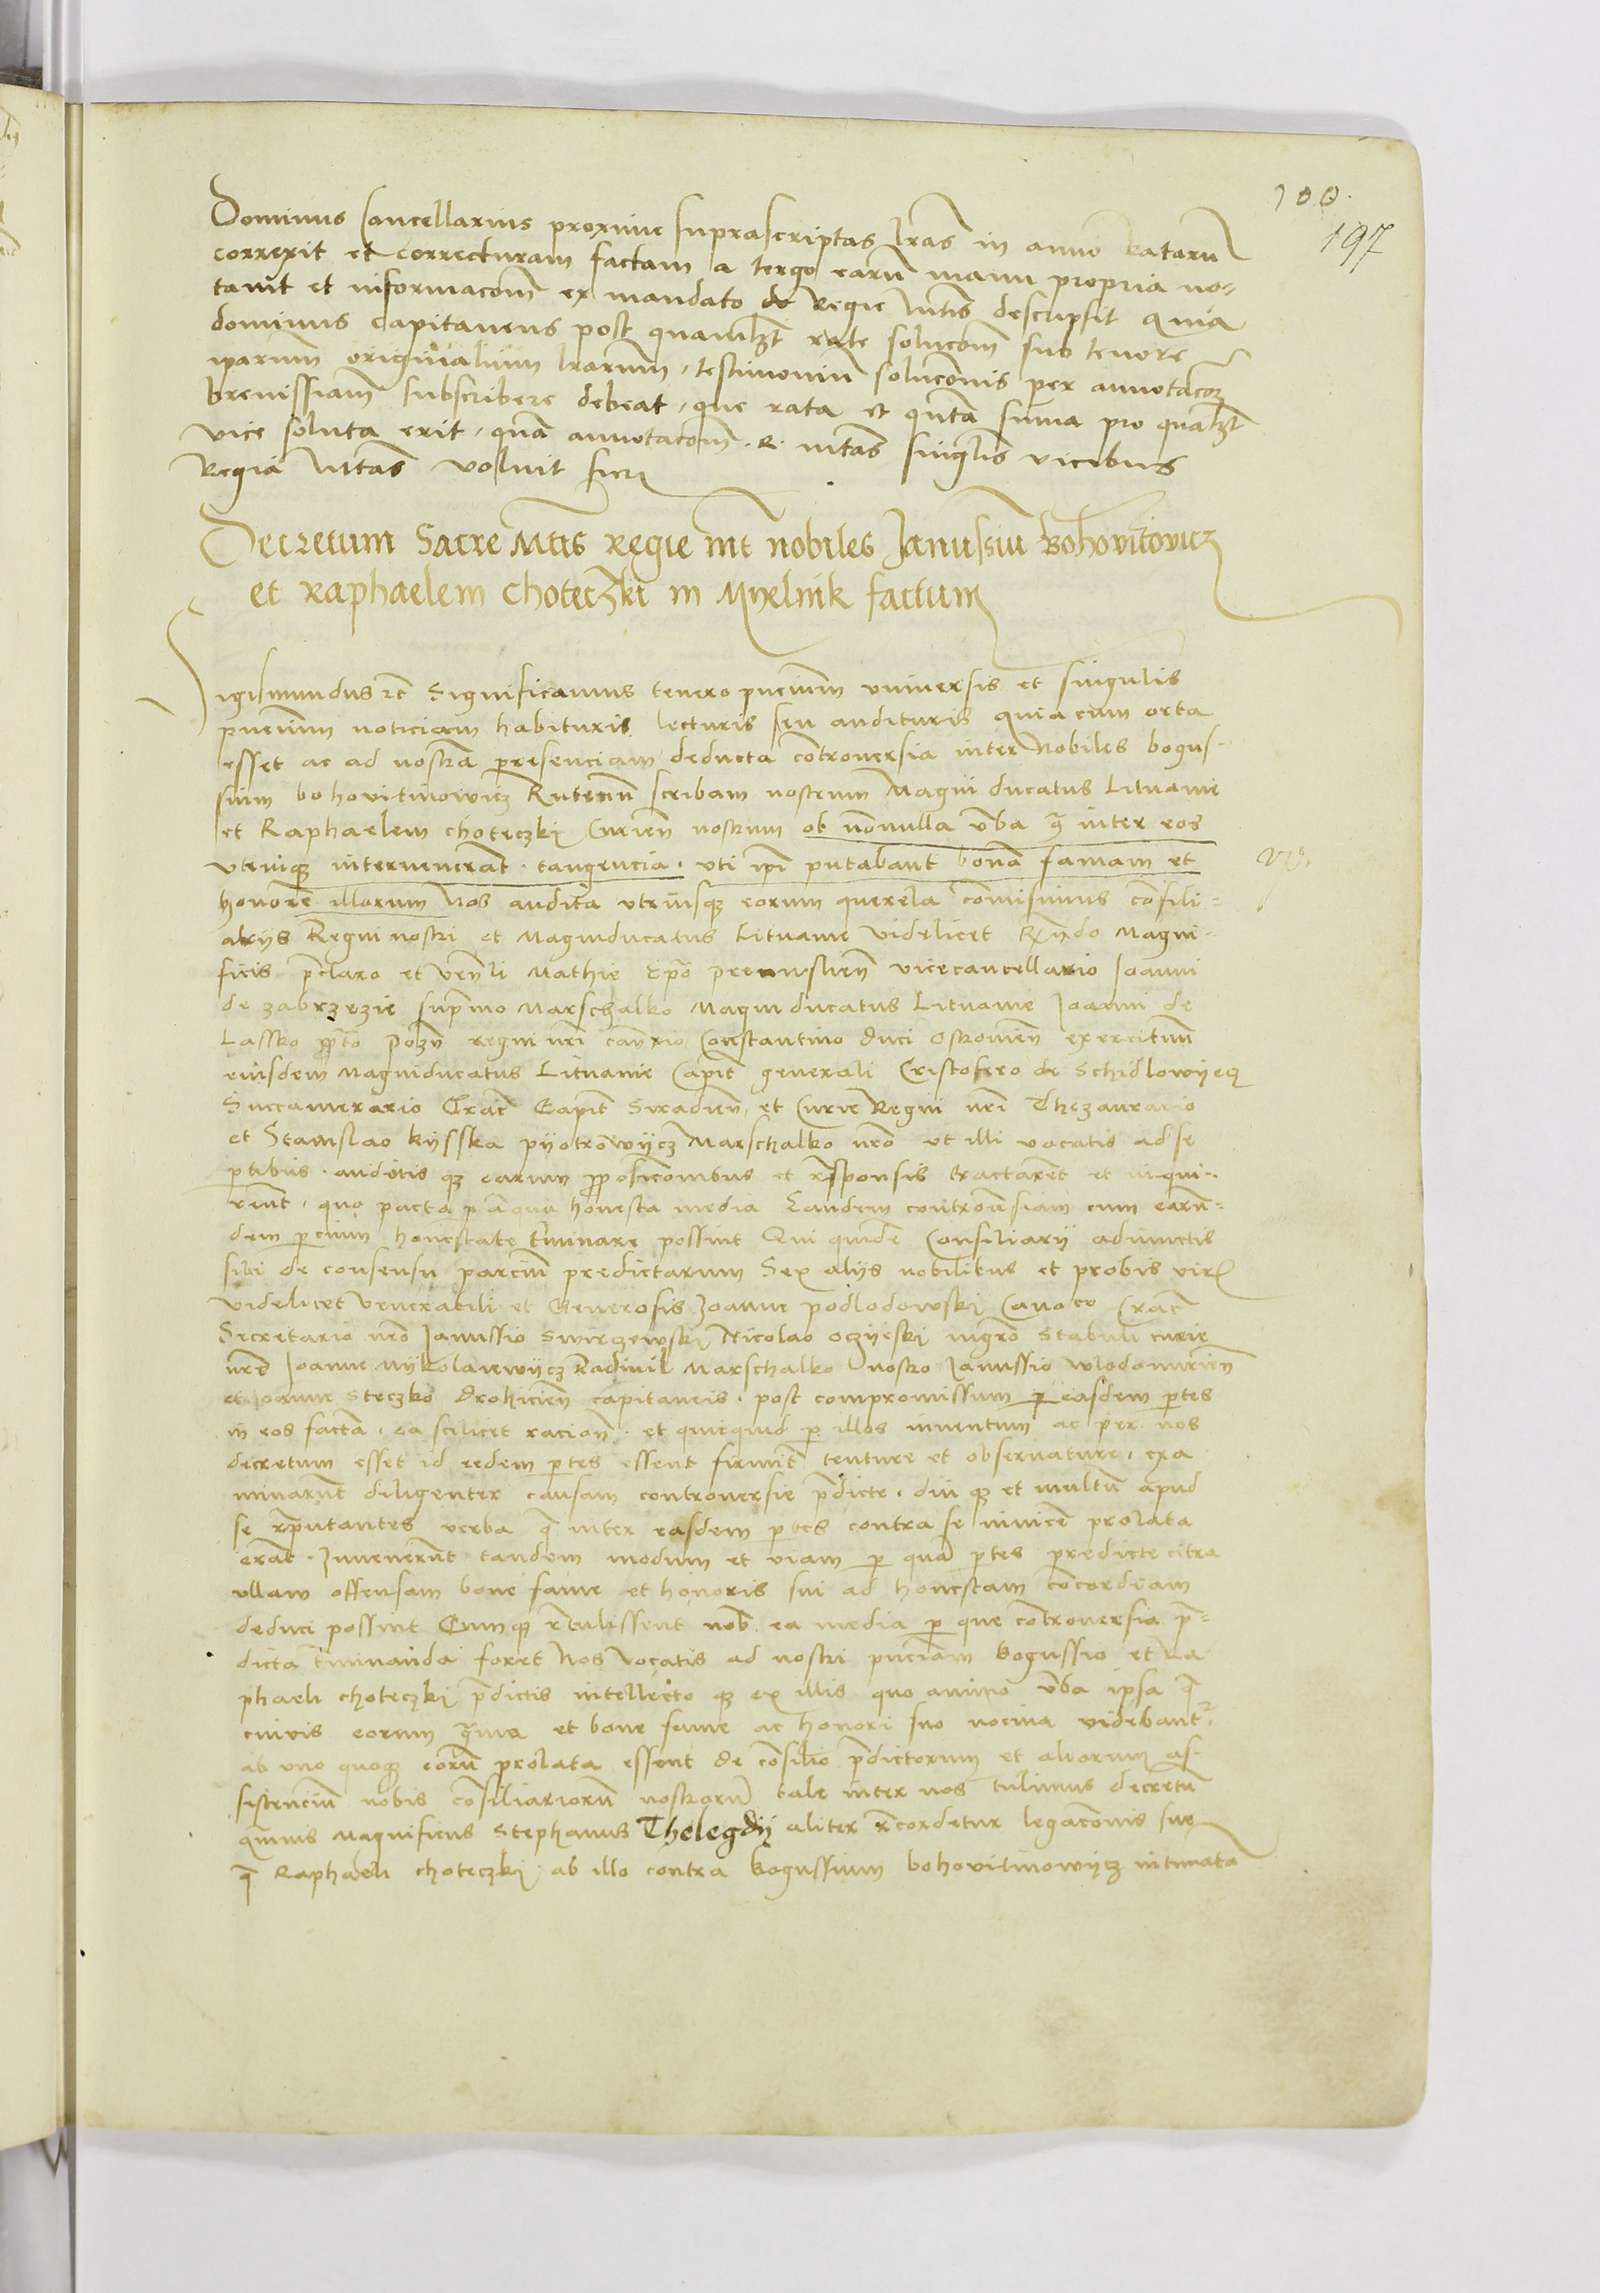 100.
197
Dominus Cancellarius proxime suprascriptas lras in anno datarũ
correxit et correcturam factam a tergo earũ manu propria no-
tavit et informacom̃ ex mandato de Regie Mtis descripsit quia
dominus capitaneus post quamlzt rate solucom̃ sub tenore
iparum originalium lrarum, testimoniũ soluconis per annotacom̃
brevissiam̃ subscribere debeat, que rata et qũta suma pro qualzt
vice soluta erit, quã annotacom̃ R. Mtas singulis vicibus
Regia Mtas voluit fieri
Decretum Sacre Mtis Regie int nobiles Janussiũ Bohovitovicz
et Raphaelem Choteczki in Myelnik factum
Sigismundus etc Significamus tenore pnciũm universis et singulis
pnciũm noticiam habituris lecturis seu audituris quia cum orta
esset ac ad nostrã presenciam deducta cõtroversia inter Nobiles bogus-
sium bohovitinowicz Rutenũ scribam nostrum Magni ducatus Lituanie
et Raphaelem choteczki Curien̄ nostrum ob nõnulla vba q̃ inter eos
utrinqz intervenerãt. tangencia. uti ipi putabant bonã famam et
honorẽ illorum Nos audita utriusqz eorum querela cõmisimus cõsili-
arijs Regni nostri et Magniducatus Lituanie videlicet Rndo Magni-
ficis p̃claro et ven̄li Mathie Ep̃o premislien̄ vicecancellario Joanni
de zabrzezie sup̃mo Marschalko Magni ducatus Lituanie Joanni de
Lassko p̃pto Pozn̄ regni nr̃i can̄rio Constantino Duci Ostrovien̄ exercituũ
eiusdem Magniducatus Lituanie Capit̃ generali Cristofero de Schidlowijecz
Succamerario Crac̃ Capit̃ Siradien̄, et Curie Regni nr̃i Thezaurario
et Stanislao kysska pyotrowijcz Marschalko nr̃o ut illi vocatis ad se
p̃tibus. auditis qz earum p̃posicionibus et r̃sponsis tractarẽt et inqui-
rent, quo pacto honesta media Eandem controṽsiam cum earũ-
dem p̃cium honestate t̃minare possint Qui quidẽ Consiliarij adiunctis
sibi de consensu parciũ predictarum Sex alijs nobilibus et probis viris
videlicet venerabili et Generosis Joanne podlodowski Canoco Crac̃
Secretario nr̃o Janussio Swirczewski Nicolao oczijeski mgr̃o stabuli curie
nr̃e Joanne Mijkolaiewijcz Radivil Marschalko nostro Janussio Wlodomirien̄
et Joanne Steczko drohicien̄ capitaneis. post compromissum p̃ easdem p̃tes
in eos factã. ea scilicet racion̄. et quicquid p̃ illos inventum ac per nos
decretum esset id eedem p̃tes essent firmit̃ tenture et observature, exa
minarũt diligenter causam controversie p̃dicte. diu qz et multũ apud
se r̃putantes verba q̃ inter easdem p̃tes contra se invicẽ prolata
erãt. Invenerũt tandem modum et viam p̃ quã p̃tes predicte citra
ullam offensam bone fame et honoris sui ad honestam cõcordiam
deduci possint Cumqz r̃tulissent nob̃ ea media p̃ que cõtroversia p̃-
dicta t̃minanda foret Nos vocatis ad nostri p̃nciam bogussio et Ra
phaeli choteczki p̃dictis intellecto qz ex illis quo animo v̄ba ipsa q̃
cuivis eorum et bone fame ac honori suo nociva videbant̃
ab uno quoqz eorũ prolata essent de cõsilio p̃dictorum et aliorum as-
sistenciũ nobis cõsiliariorũ nostrorũ tale inter nos tulimus decretũ
quãvis Magnificus Stephanus Thelegdij aliter r̃cordetur legacõnis sue
q̃ Raphaeli choteczki. ab illo contra bogussium bohovitinowijcz intimata